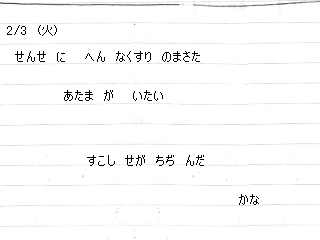 2/3 (火)
せんせ に へん なくすり のまさた
あたま が いたい
すこし せが ちぢ んだ
かな